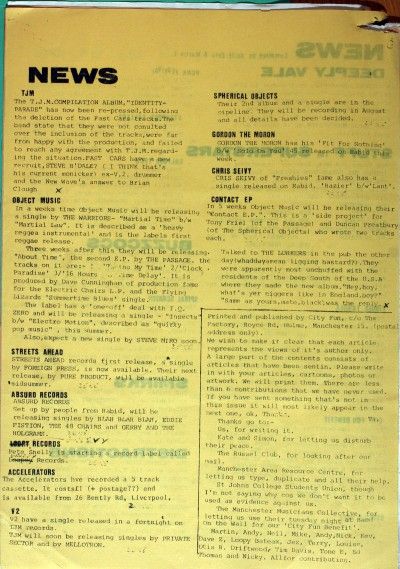 NEWS
TJM
The T.J.M.COMPILATION ALBUM,"IDENTITY-
PARADE" has now been re-pressed,following
the deletion of the Fast Cars tracks.The
band state that they were not consulted
over the inclusion of the tracks,were far
from happy with the production, and failed
to reach any agreement with T.J.M.regard-
ing the situation.FAST CARS have a new
recruit,STEVE B'DALE? (I THINK that's
his current monicker) ex-V.2. drummer
and the New Wave's answer to Brian
Clough
OBJECT MUSIC
In 2 weeks time Object Music will be releasing
a single by THE WARRIORS- "Martial Time" b/w
"Martial Law". It is described as a 'heavy
reggae instrumental' and is the labels first
reggae release.
Three weeks after this they will be releasing
'About Time', the second E.P. by THE PASSAGE. the
tracks on it are:- 'Taking My Time' 2/'Clock
Paradise' 3/'16 Hours' Time Delay'. It is
produced by Dave Cunningham of production fame
for the Electric Chairs L.P. and the Flying
Lizards 'Summertime Blues' single.
The label has a 'one-off' deal with T.Q.
ZERO and will be releasing a single - "Insects"
b/w "Electro Motion", described as "quirky
pop music" , this summer.
Also,expect a new single by STEVE MIRO soon.
STREETS AHEAD
STREETS AHEAD records first release, a single
by FOREIGN PRESS, is now available. Their next
release, by PURE PRODUCT, will be available
midsummer.
ABSURD RECORDS
ABSURD RECORDS
Set up by people from Rabid, will be
releasing singles by BLAH BLAH BLAH, EDDIE
FICTION, THE 48 CHAIRS and GERRY AND THE
HOLOGRAMS.
RECORDS
Pete Shelly's starting a record label called
Records.
ACCELERATORS
The Accelerators hve recorded a 5 track
cassette, It costs£1 (+ postage??) and
is available from 26 Bently Rd, Liverpool,
V2
V2 have a single released in a fortnight on
TJM records.
TJM will soon be releasing singles by PRIVATE
SECTOR and by MELLOTRON.
SPHERICAL OBJECTS
Their 2nd album and a single are in the
pipeline. They will be recording in August
and all details have been decided.
GORDON THE MORON
GORDON THE MORON has his 'Fit For Nothing'
b/w Sold on You' 45 released on Rabid this
week.
CHRIS SEIVY
CRIS SEIVY of "Freshies" fame also has a
single released on Rabid. 'Baiser' b/w'Last'.
CONTACT EP
In 5 weeks Object Music will be releasing their
"Contact E.P.". This is a 'side project' for
Tony Friel (of the Passage) and Duncan Prestbury
(of The Spherical Objects) who wrote two tracks
each.
Talked to THE LURKERS in the pub the other
day(whaddayamean liggng bastard?).They
were apparently most unchuffed with the
residents of the Deep South of the U.S.A
where they made the new album."Hey,boy,
what's yer niggers like in England,boy?"
"Same as yours,mate,black"was the reply.
Printed and published by City Fun, C/o The
Factory, Royce Rd, Hulme, Manchester 15. (postal
address only).
We wish to make it clear that each article
represents the views of it's author only.
A large part of the content consists of
articles that have been sentin. Please write
in with your articles, cartoons, photos or
artwork. We will print them. There are less
than 6 contributions that we have never used.
If you have sent something that's not in
this issue it will most likely appear in the
next one, ok, Thank.
Thanks go to:-
Us, for writing it.
Kate and Simon, for letting us disturb
their peace.
The Russel Club, for looking after our
mail.
Manchester Area Resource Centre, for
letting us type, duplicate and all their help.
St Johns College Students Union, though
I'm not saying why cos we don't want it to be
used as evidence against us.
The Manchester Musicians Collective, for
letting us use their tuesday night at Band
On the Wall for our 'City Fun Benefit'.
Martin, Andy, Neil, Mike, Andy,Nick, Kev,
Dave Z, Loopy Datbean, Jez, Terry, Louise,
Otis B. Driftwood, Tim Davis, Tone E, Ed
Thomas and Nicky. Allfor contributing.